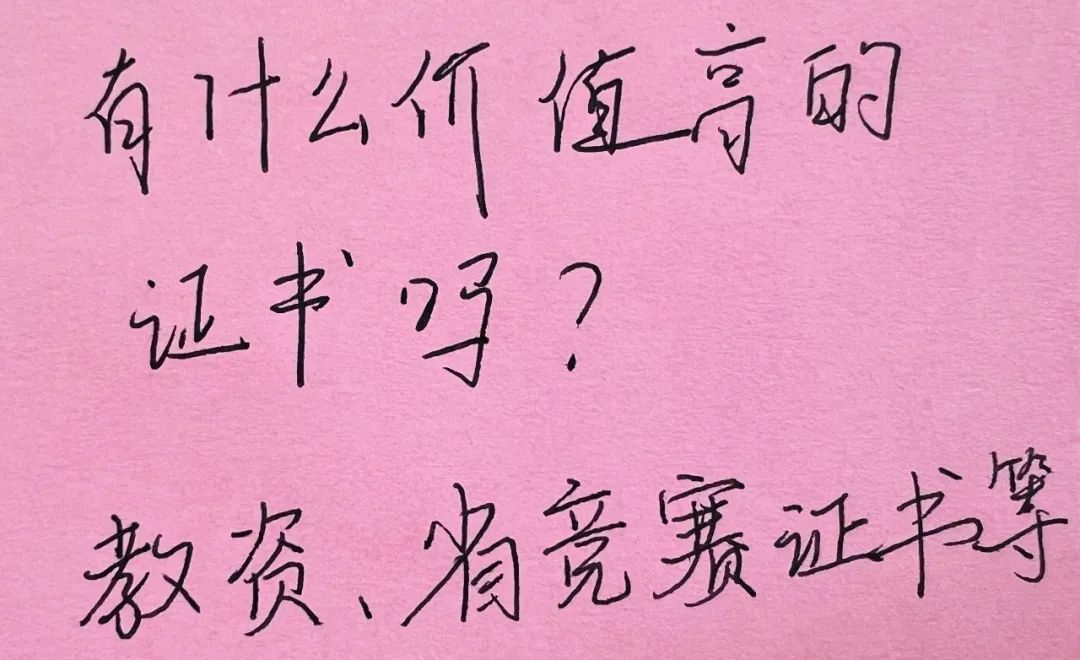 有什么价值高的
证书吗?
教资、省竞赛证书等